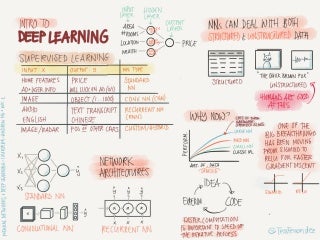 INTRO TO
DEEP LEARNING
SUPERVISED LEARNING
INPUT X OUTPUT Y NN TYPE
HOME FEATURES PRICE STANDARD NN
AD+USER INFO WILL CLICK ON AD (0/1)
IMAGE OBJECT (1...1000) CONV. NN (CNN)
AUDIO TEXT TRANSCRIPT RECURRENT NN (RNN)
ENGLISH CHINESE
IMAGE/RADAR POS OF OTHER CARS CUSTOM/HYBRID
INPUT LAYER
HIDDEN LAYER
OUTPUT LAYER
AREA
#ROOMS
LOCATION
WEALTH
PRICE
NETWORK
ARCHITECTURES
STANDARD NN
CONVOLUTIONAL NN
RECURRENT NN
NNs CAN DEAL WITH BOTH
STRUCTURED & UNSTRUCTURED DATA
STRUCTURED
"THE QUICK BROWN FOX"
UNSTRUCTURED
HUMANS ARE GOOD
AT THIS
WHY NOW?
PERFORM
LARGE NN
MED NN
SMALL NN
CLASSIC ML
AMT. OF DATA
ONE OF THE
BIG BREAKTHROUGHS
HAS BEEN MOVING
FROM SIGMOID TO
RELU FOR FASTER
GRADIENT DESCENT
SIGMOID
RELU
IDEA
CODE
EXPERIM
FASTER COMPUTATION
IS IMPORTANT TO SPEED UP
THE ITERATIVE PROCESS
@TessFerrandez